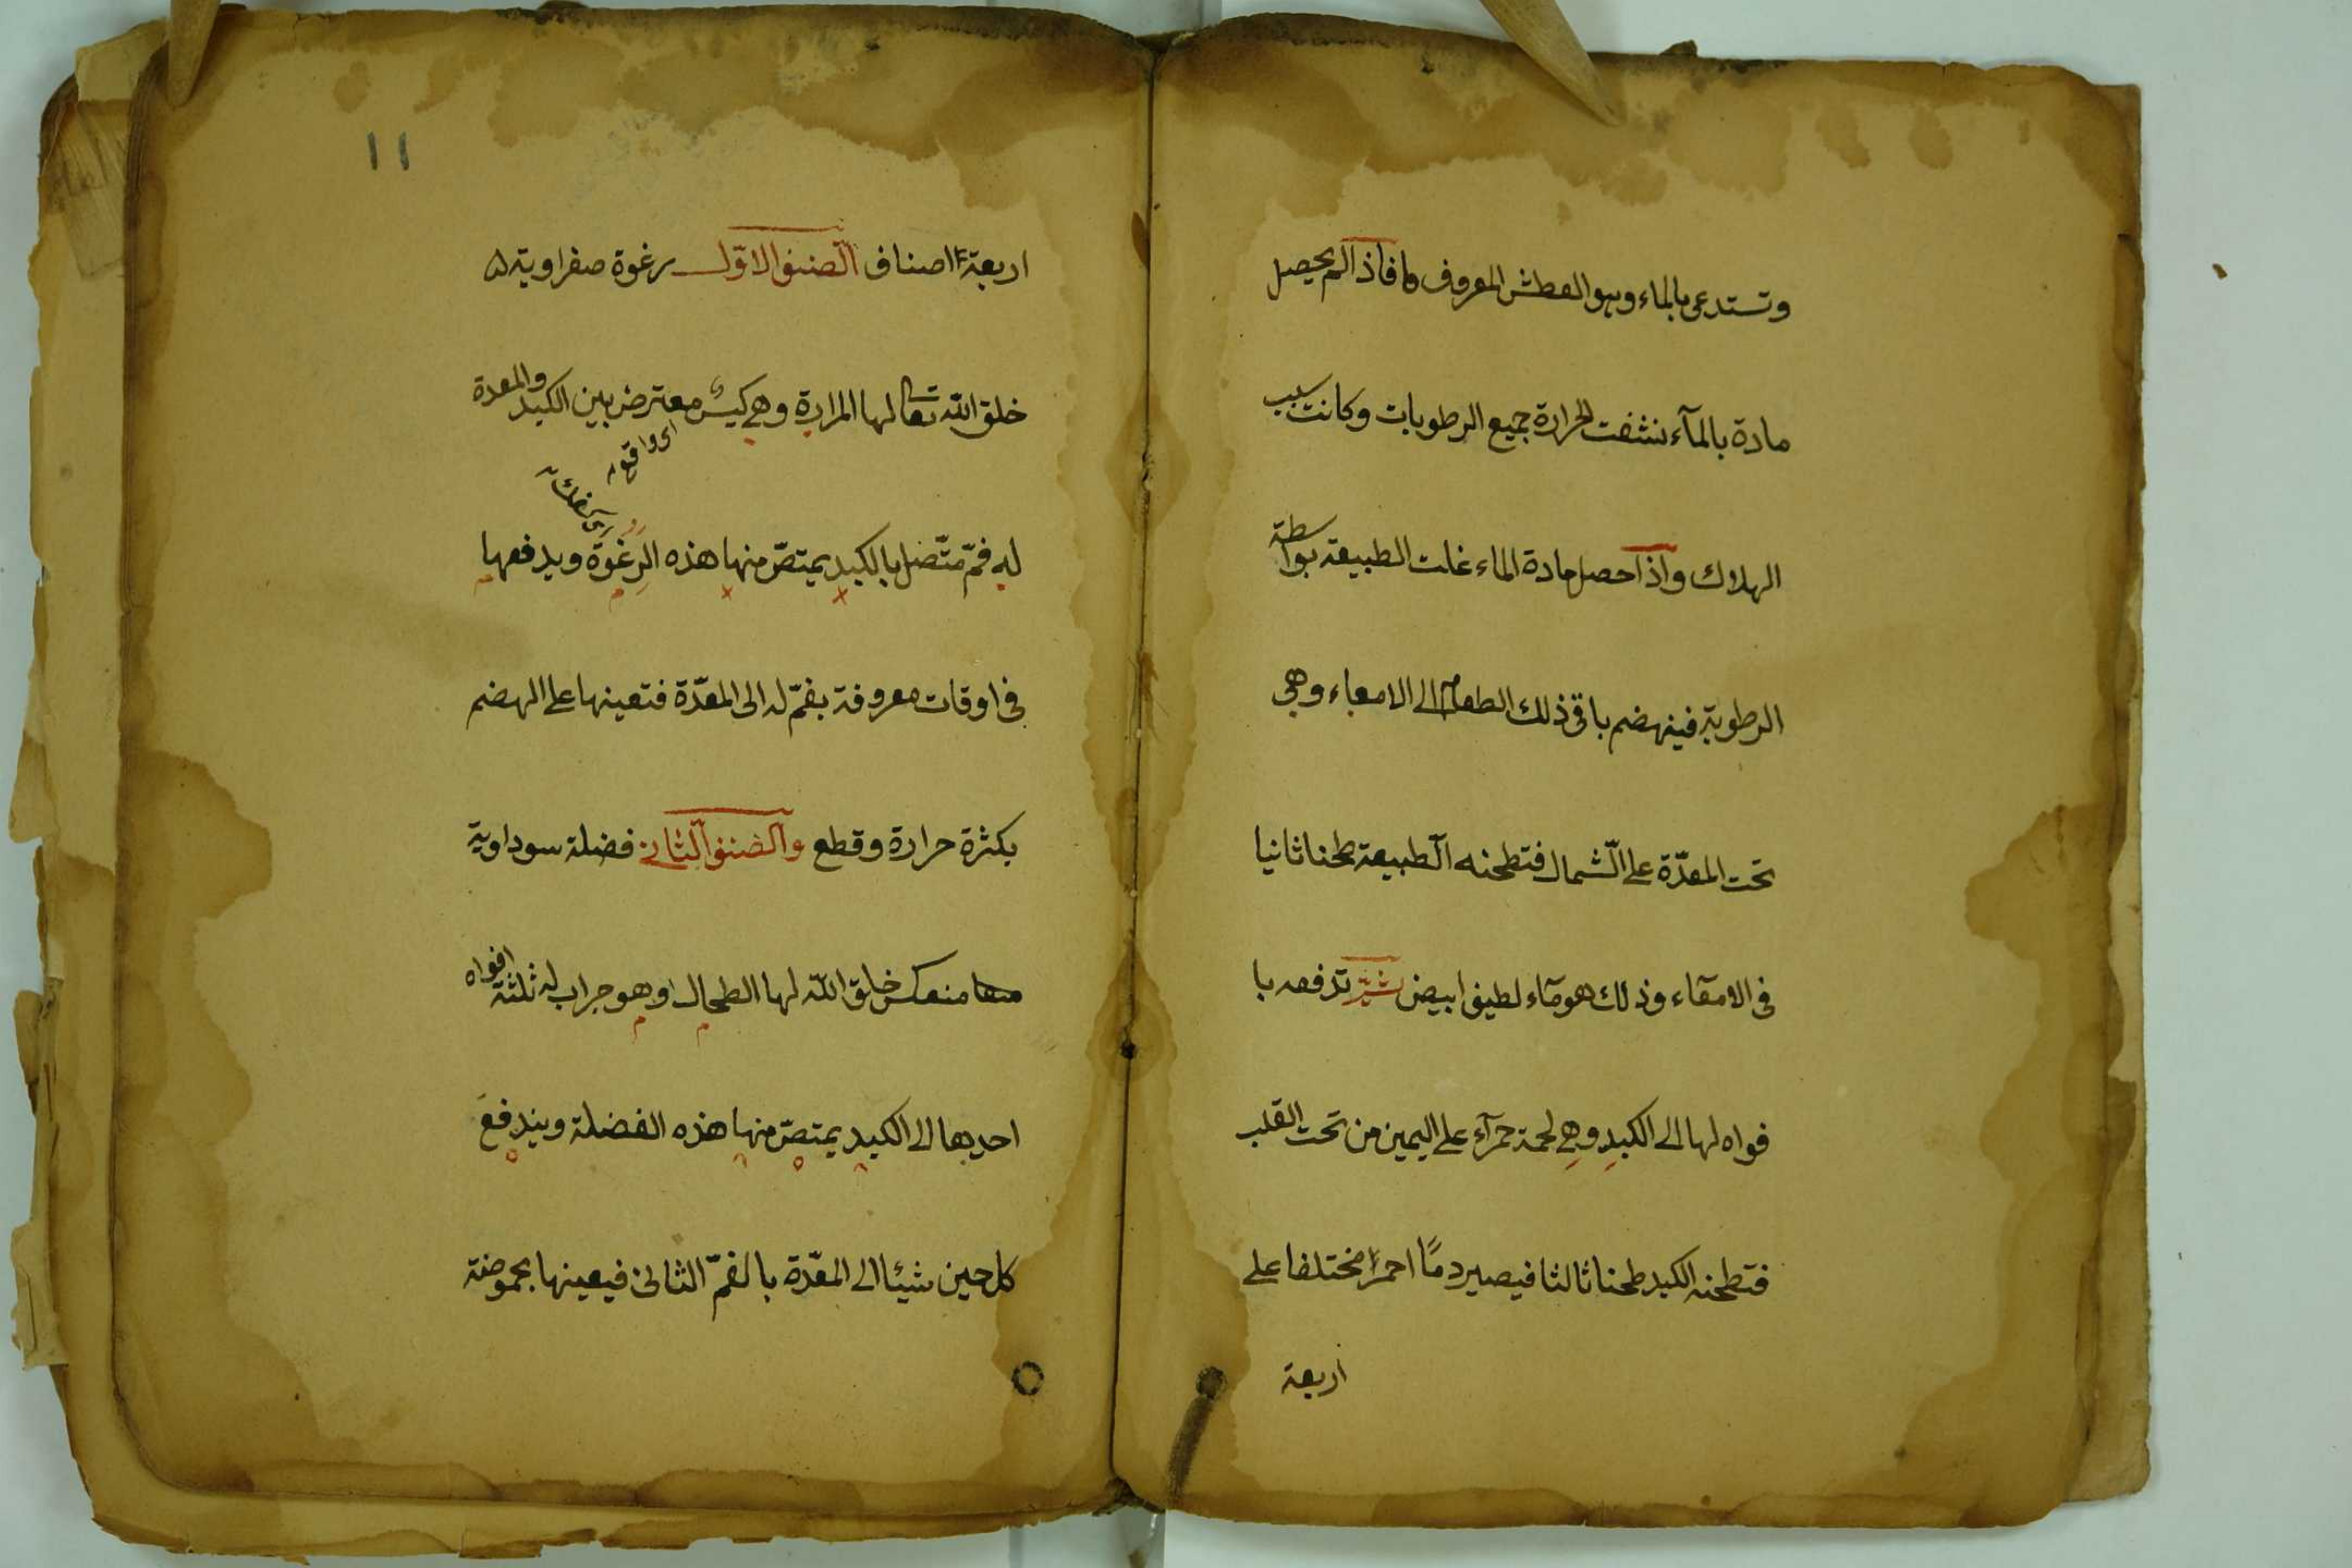 وتستدعي بالماء وهو العطش المعروف فاذا لم يحصل
مادة بالمآء نشفت الحرارة جميع الرطوبات وكانت سبب
الهلاك واذا حصل مادة الماء غلت الطبيعة بواسطة
الرطوبة فينهضم باقي ذلك الطعام الى الامعاء وهي
تحت المعدّة على الشّمال فتطحنه الطبيعة طحنا ثانيا
في الامعآء وذلك هو مآء لطيف ابيض ثمّ تدفعه با
فواه لها الى الكبد وهي لحمة حمرآء على اليمين من تحت القلب
فتطحنه الكبد طحنا ثالثا فيصير دمًا احمر مختلفا على
اربعة
١١
اربعة اصناف الصنف الاوّل رغوة صفراوية
خلق الله تعالى لها المرارة وهي كيس معترض بين الكبد والمعدة
اى واقع
له فمّ متّصل بالكبد يمتصّ منها هذه الرغوة ويدفعها
في اوقات معروفة بفمّ له الى المعدّة فتعينها على الهضم
بكثرة حرارة وقطع والصنف الثاني فضلة سوداوية
منعكس خلق الله لها الطحال وهو جراب له ثلثة افواه
احديها الى الكبد يمتصّ منها هذه الفضلة ويندفع
كل حين شيئا الى المعدّة بالفمّ الثاني فيعينها بحموضة